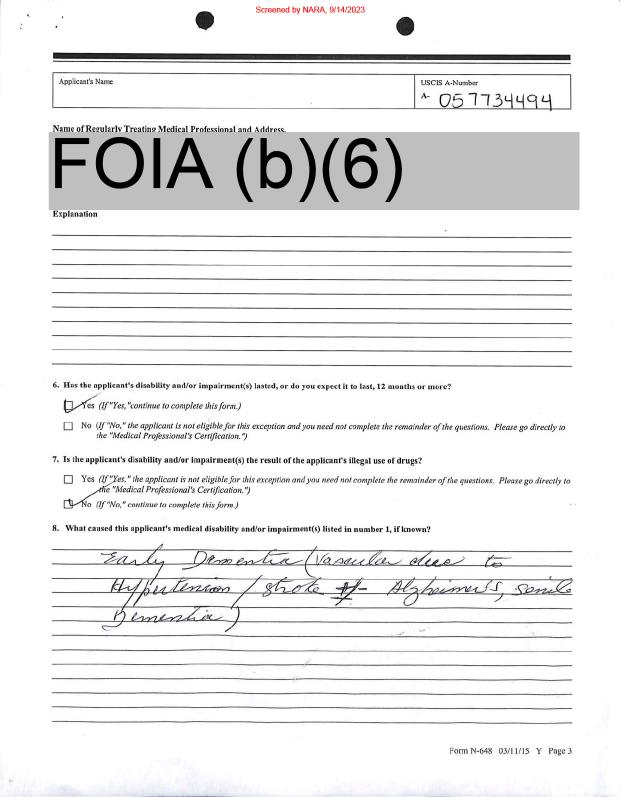 Screened by NARA, 9/14/2023
Applicant's Name
USCIS A-Number
A- 057734494
Name of Regularly Treating Medical Professional and Address.
FOIA (b)(6)
Explanation
6. Has the applicant's disability and/or impairment(s) lasted, or do you expect it to last, 12 months or more?
Yes (If "Yes," continue to complete this form.)
No (If "No," the applicant is not eligible for this exception and you need not complete the remainder of the questions. Please go directly to
the "Medical Professional's Certification.")
7. Is the applicant's disability and/or impairment(s) the result of the applicant's illegal use of drugs?
Yes (If "Yes," the applicant is not eligible for this exception and you need not complete the remainder of the questions. Please go directly to
the "Medical Professional's Certification.")
No (If "No," continue to complete this form.)
8. What caused this applicant's medical disability and/or impairment(s) listed in number 1, if known?
Early Dementia (Vascular due to
Hypertension / stroke +/- Alzheimer's, senile
Dementia)
Form N-648 03/11/15 Y Page 3